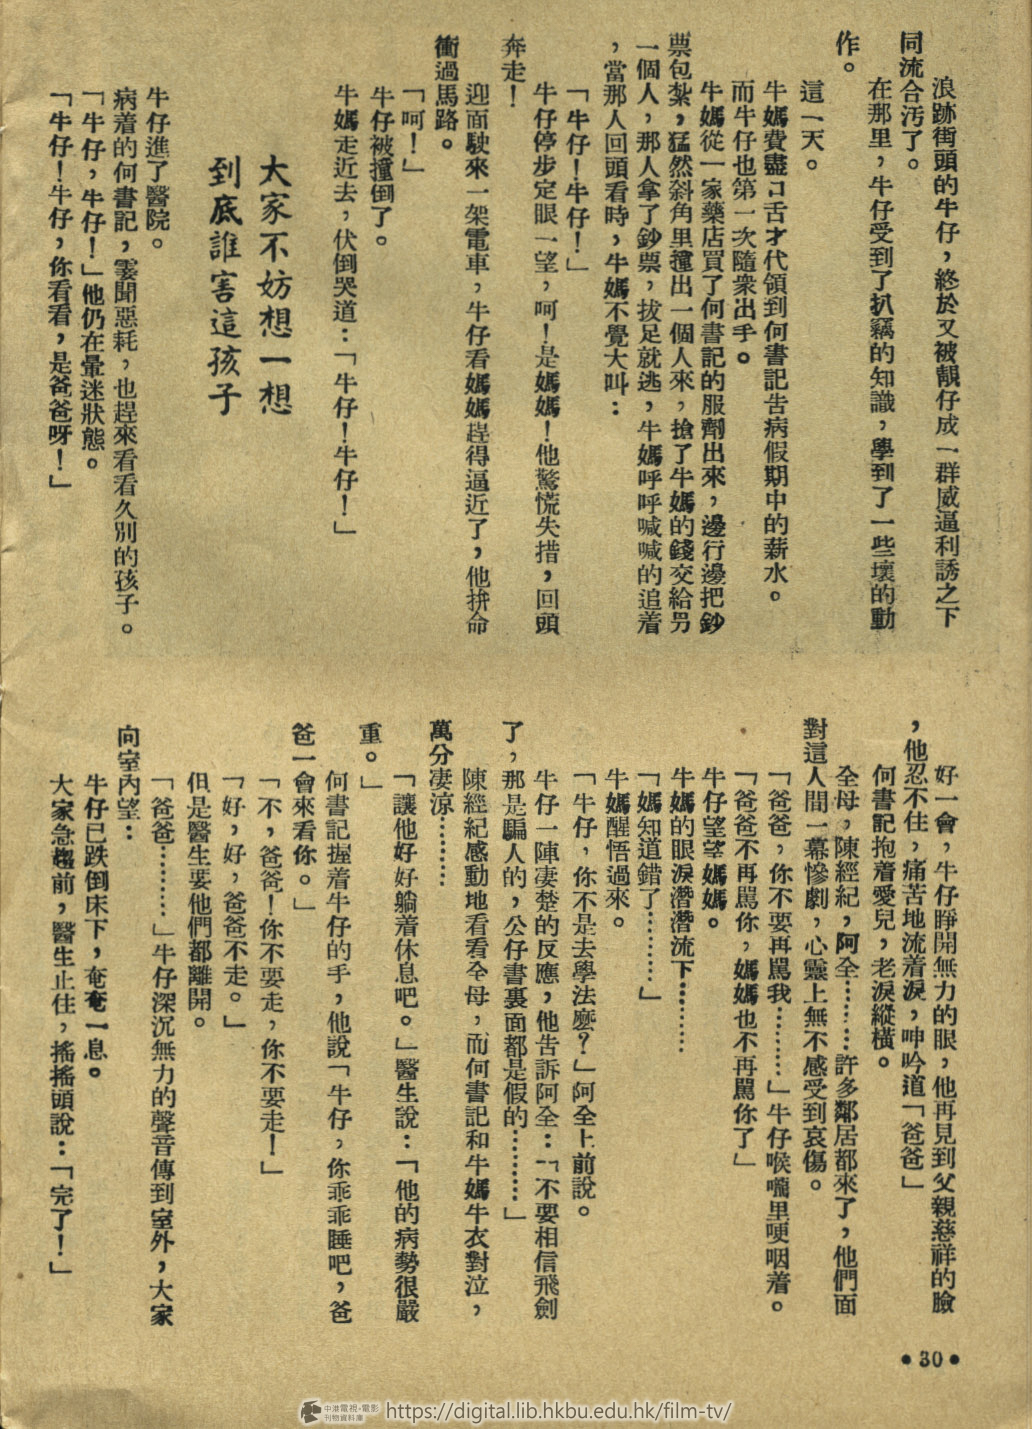 浪跡街頭的牛仔，終於又被靚仔成一群威逼利誘之下
同流合汚了。
在那里，牛仔受到了扒竊的知識，學到了一些壞的動
作。
這一天。
牛媽費盡口舌才代領到何書記告病假期中的薪水。
而牛仔也第一次隨衆出手。
牛媽從一家藥店買了何書記的服劑出來，邊行邊把鈔
票包紮，猛然斜角里撞出一個人來，搶了牛媽的錢交給另
一個人，那人拿了鈔票，拔足就逃，牛媽呼呼喊喊的追着
，當那人回頭看時，牛媽不覺大叫：
「牛仔！牛仔！」
牛仔停步定眼一望，呵！是媽媽！他驚慌失措，回頭
奔走！
迎面駛來一架電車，牛仔看媽媽趕得逼近了，他拚命
衝過馬路。
「呵！」
牛仔被撞倒了。
牛媽走近去，伏倒哭道：「牛仔！牛仔！」
大家不妨想一想
到底誰害這孩子
牛仔進了醫院。
病着的何書記，霎聞惡耗，也趕來看看久別的孩子。
「牛仔，牛仔！」他仍在暈迷狀態。
「牛仔！牛仔，你看看，是爸爸呀！」
好一會，牛仔睜開無力的眼，他再見到父親慈祥的臉
，他忍不住，痛苦地流着淚，呻吟道「爸爸」
何書記抱着愛兒，老淚縱橫。
全母，陳經紀，阿全………許多鄰居都來了，他們面
對這人間一幕慘劇，心靈上無不感受到哀傷。
「爸爸，你不要再罵我………」牛仔喉嚨里哽咽着。
「爸爸不再罵你，媽媽也不再罵你了」
牛仔望望媽媽。
牛媽的眼淚潸潸流下………
「媽知道錯了………」
牛媽醒悟過來。
「牛仔，你不是去學法麼？」阿全上前說。
牛仔一陣凄楚的反應，他告訴阿全：「不要相信飛劍
了，那是騙人的，公仔書裏面都是假的………」
陳經紀感動地看看全母，而何書記和牛媽牛衣對泣，
萬分凄涼………
「讓他好好躺着休息吧。」醫生說：「他的病勢很嚴
重。」
何書記握着牛仔的手，他說「牛仔，你乖乖睡吧，爸
爸一會來看你。」
「不，爸爸！你不要走，你不要走！」
「好，好，爸爸不走。」
但是醫生要他們都離開。
「爸爸………」牛仔深沉無力的聲音傳到室外，大家
向室內望：
牛仔已跌倒床下，奄奄一息。
大家急趨前，醫生止住，搖搖頭說：「完了！」
•30•
中港電視•電影
刊物資料庫
https://digital.lib.hkbu.edu.hk/film-tv/